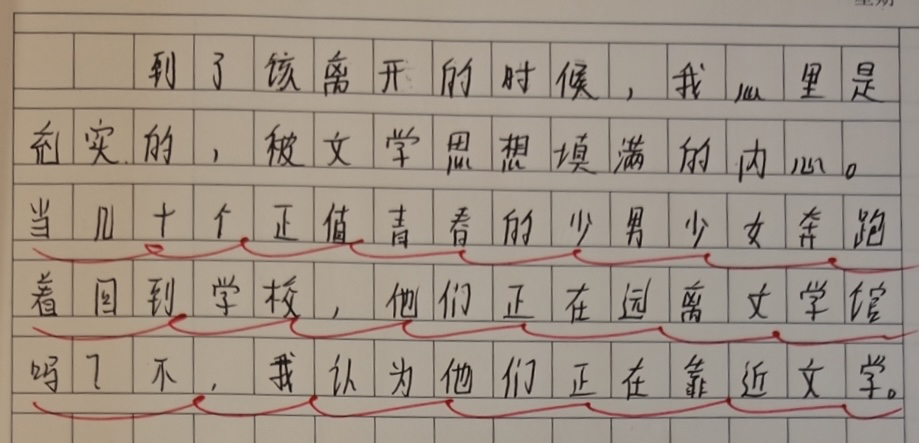 星期
到了该离开的时候，我心里是
充实的，被文学思想填满的内心。
当几十个正值青春的少男少女奔跑
着回到学校，他们正在远离文学馆
吗？不，我认为他们正在靠近文学。